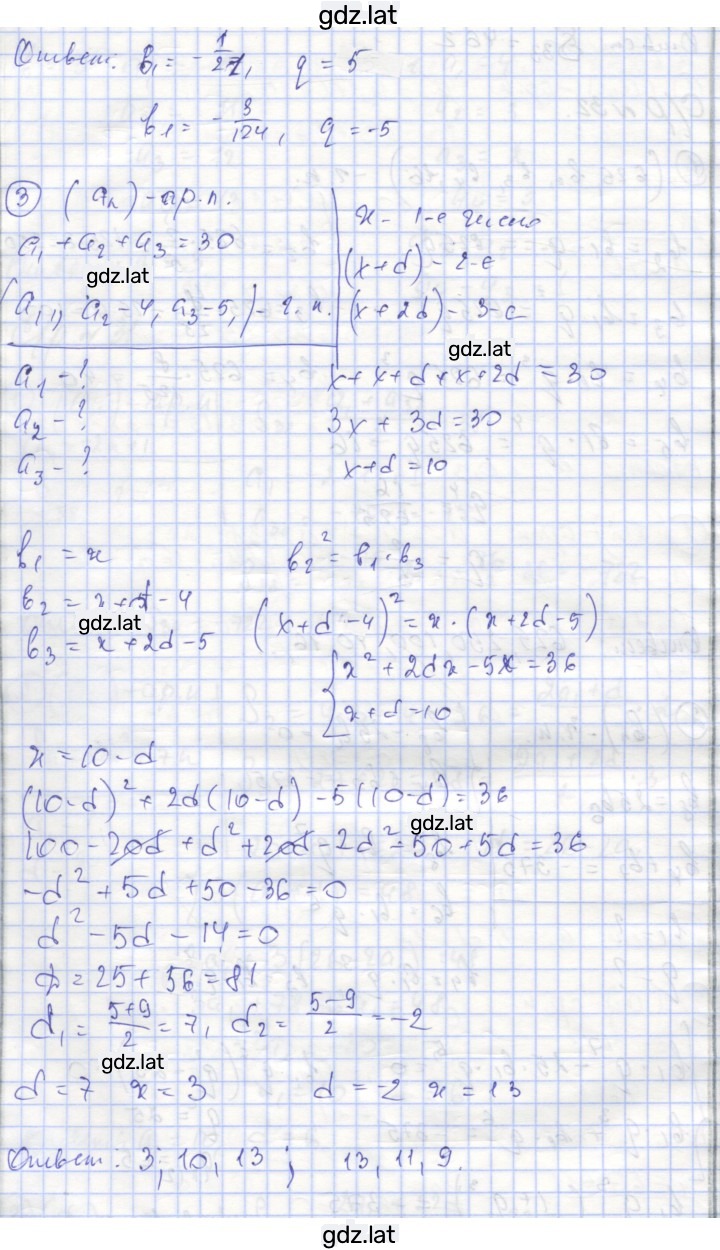 gdz.lat
Ответ: b₁ = -1/21, q = 5
b₁ = -3/124, q = -5
③ (aₙ) - ар.п.
a₁ + a₂ + a₃ = 30
gdz.lat
(a₁, a₂ - 4, a₃ - 5,) - г.п.
a₁ - ?
a₂ - ?
a₃ - ?
x - 1-е число
(x + d) - 2-е
(x + 2d) - 3-е
gdz.lat
x + x + d + x + 2d = 30
3x + 3d = 30
x + d = 10
b₁ = x
b₂ = x + d - 4
gdz.lat
b₃ = x + 2d - 5
b₂² = b₁ · b₃
(x + d - 4)² = x · (x + 2d - 5)
{ x² + 2dx - 5x = 36
x + d = 10
x = 10 - d
(10 - d)² + 2d(10 - d) - 5(10 - d) = 36
gdz.lat
100 - 20d + d² + 20d - 2d² - 50 + 5d = 36
-d² + 5d + 50 - 36 = 0
d² - 5d - 14 = 0
D = 25 + 56 = 81
d₁ = (5+9)/2 = 7, d₂ = (5-9)/2 = -2
gdz.lat
d = 7 x = 3 d = -2 x = 13
Ответ: 3, 10, 13; 13, 11, 9.
gdz.lat